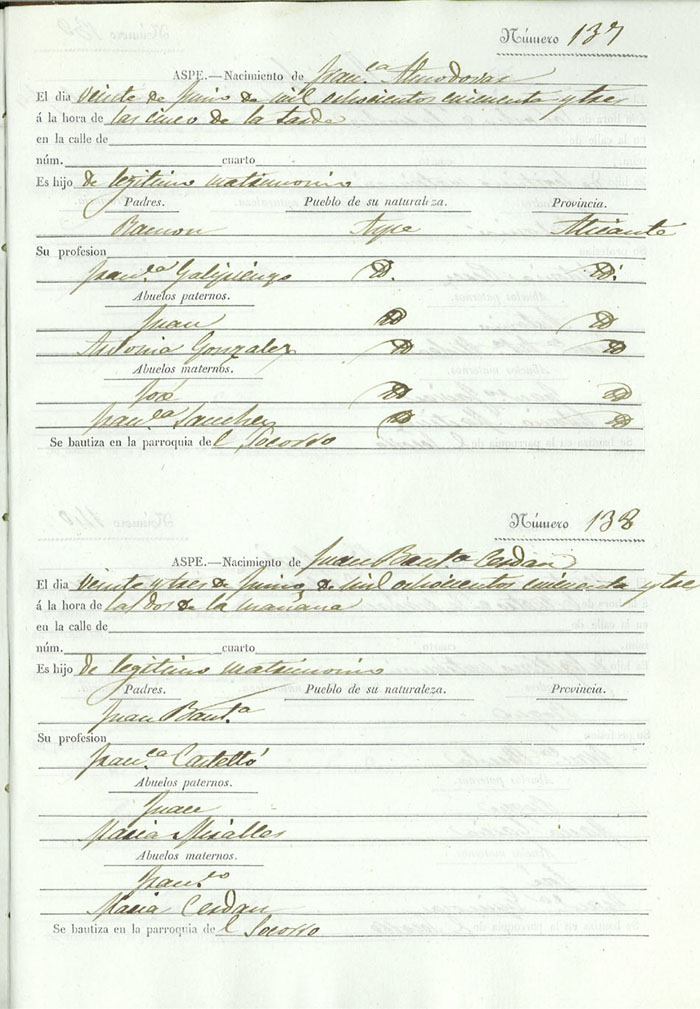 Número 137
ASPE.—Nacimiento de Fran.ca Almodovar
El dia veinte de Junio de mil ochocientos cincuenta y tres
á la hora de las cinco de la tarde
en la calle de
núm. cuarto
Es hijo de legitimo matrimonio
Padres. Pueblo de su naturaleza. Provincia.
Ramon Aspe Alicante
Su profesion
Fran.ca Galipienzo D. D.
Abuelos paternos.
Juan D D
Antonia Gonzalez D D
Abuelos maternos.
José D D
Fran.ca Sanchez D D
Se bautiza en la parroquia del Socorro
Número 138
ASPE.—Nacimiento de Juan Baut.a Cerdan
El dia veinte y tres de Junio de mil ochocientos cincuenta y tre
á la hora de las dos de la mañana
en la calle de
núm. cuarto
Es hijo de legitimo matrimonio
Padres. Pueblo de su naturaleza. Provincia.
Juan Baut.a
Su profesion
Fran.ca Castelló
Abuelos paternos.
Juan
Maria Miralles
Abuelos maternos.
Fran.co
Maria Cerdan
Se bautiza en la parroquia de l Socorro